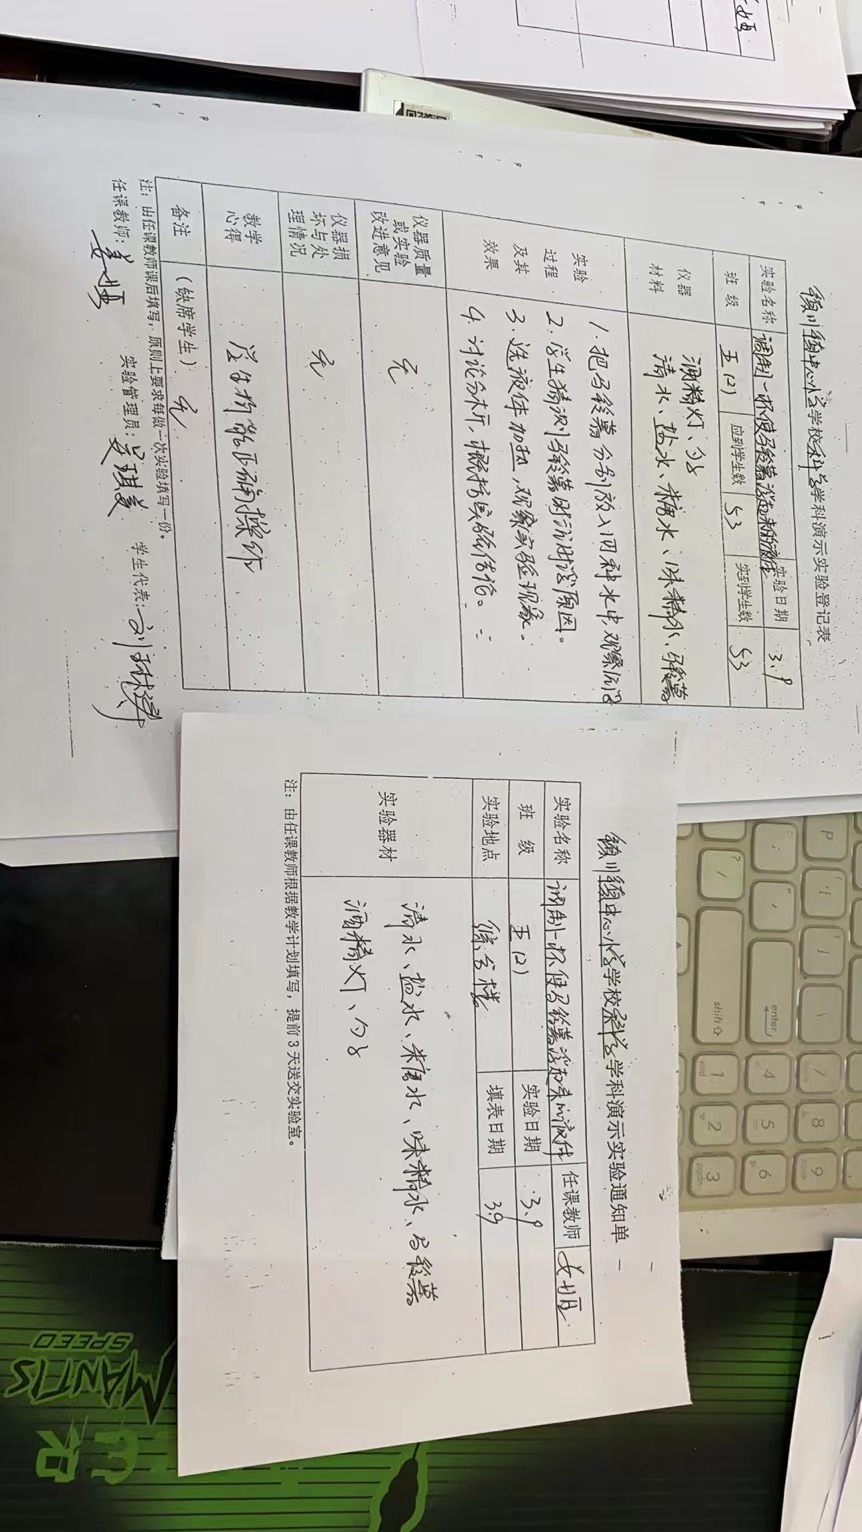 镇中心小学学校科学学科演示实验登记表
实验名称 调制一杯使马铃薯浮起来的液体 实验日期 3.9
班级 五(2) 应到学生数 53 实到学生数 53
仪器材料
酒精灯、勺
清水、盐水、糖水、味精水、马铃薯
实验过程及其效果
1.把马铃薯分别放入四种水中,观察沉浮
2.学生猜测马铃薯时沉时浮原因。
3.选液体加热,观察实验现象。
4.讨论分析,概括实验结论。
仪器质量或实验改进意见 无
仪器损坏与处理情况 无
教学心得 学生都能正确操作
备注 (缺席学生) 无
注:由任课教师课后填写,原则上要求每做一次实验填写一份。
任课教师: 实验管理员:吴琪 学生代表:刘
镇中心小学学校科学学科演示实验通知单
实验名称 调制一杯使马铃薯浮起来的液体 任课教师
班级 五(2) 实验日期 3.9
实验地点 综合楼 填表日期 3.9
实验器材
清水、盐水、糖水、味精水、马铃薯
酒精灯、勺
注:由任课教师根据教学计划填写,提前3天送交实验室。
enter
shift
P
1
2
3
4
5
6
7
8
9
MANTIS
SPEED